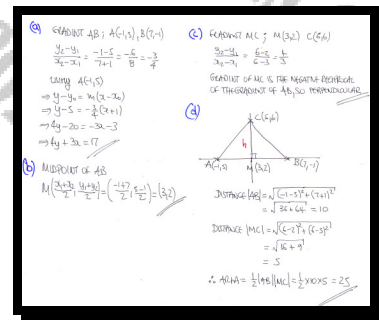 (a) GRADIENT AB ; A(-1,5), B(7,-1)
y₂-y₁/x₂-x₁ = -1-5/7+1 = -6/8 = -3/4
USING A(-1,5)
⇒ y-y₀ = m(x-x₀)
⇒ y-5 = -3/4(x+1)
⇒ 4y-20 = -3x-3
⇒ 4y + 3x = 17
(b) MIDPOINT OF AB
M(x₁+x₂/2, y₁+y₂/2) = (-1+7/2, 5-1/2) = (3,2)
(c) GRADIENT MC ; M(3,2) C(6,6)
y₂-y₁/x₂-x₁ = 6-2/6-3 = 4/3
GRADIENT OF MC IS THE NEGATIVE RECIPROCAL
OF THE GRADIENT OF AB, SO PERPENDICULAR
(d)
C(6,6)
h
A(-1,5) M(3,2) B(7,-1)
DISTANCE |AB| = √(-1-5)²+(7+1)²
= √36+64 = 10
DISTANCE |MC| = √(6-2)²+(6-3)²
= √16+9
= 5
∴ AREA = 1/2|AB||MC| = 1/2×10×5 = 25